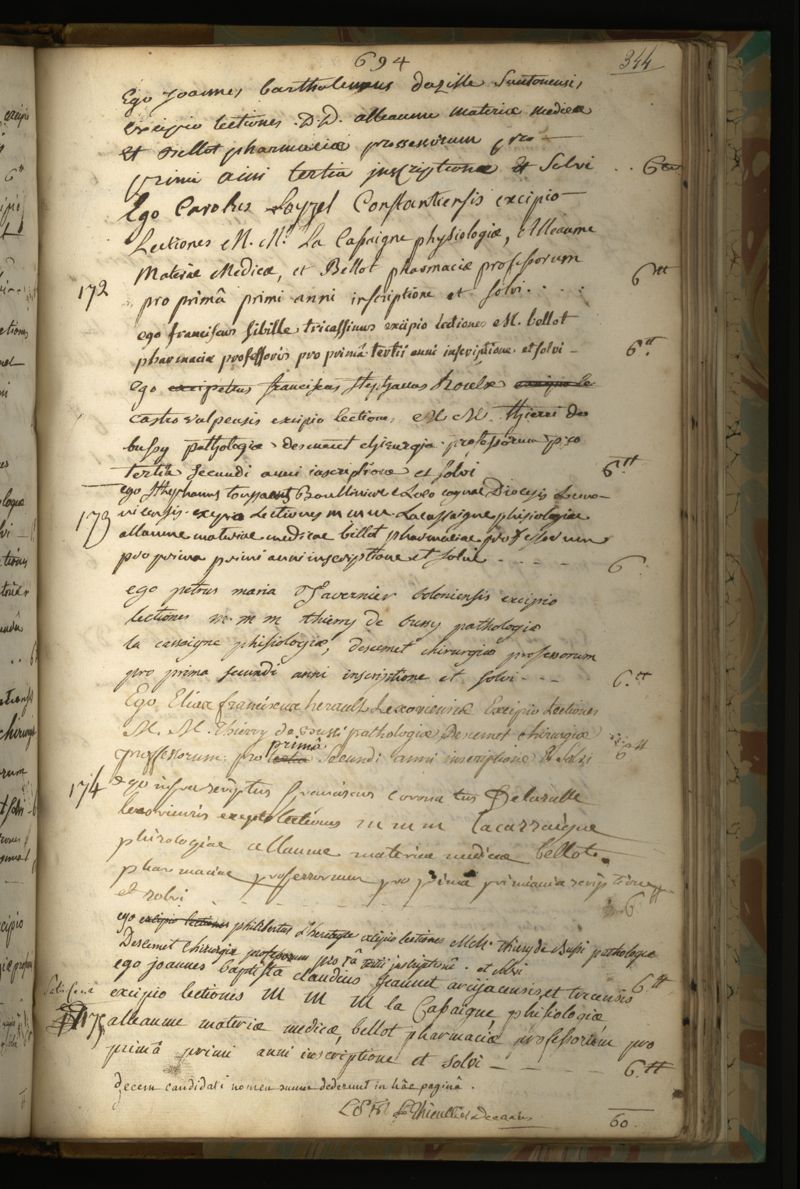 694
344
Ego Joannes bartholemæus dazille Santonensis
excipio lectiones D.D. alleaume materiæ medicæ
et Bellot pharmaciæ professorum pro
primi anni tertia inscriptione et Solvi .. 6tt
Ego Carolus Loyzel Constantiensis excipio
Lectiones M. Mrs La Cassaigne physiologiæ, Alleaume
Materiæ Medicæ, et Bellot pharmaciæ professorum
172 pro primâ primi anni inscriptione et solvi . . . . 6tt
ego franciscus Sibille tricassinus excipio lectiones M. bellot
pharmaciæ professoris pro primâ tertii anni inscriptione et solvi - 6.tt
ego franciscus Stephanus
castrovalpensis excipio lectiones M M. thieri de
bussy pathologiæ descemet chirurgiæ professorum pro
tertia secundi anni inscriptione et solvi 6tt
ego Stephanus toussaent e Loco Diocesis
excipio Lectiones m m m Lacassaigne phisiologiæ
173 alleaume materiæ medicae billot pharmaciae professorum
pro prima primi anni inscriptione et solvi - - - - 6
ego petrus maria Tavernier boloniensis excipio
lectiones m m m thierry de bussy pathologiæ
la cassaigne phisiologiæ, descemet chirurgiæ professorum
pro prima secundi anni inscriptione et solvi - - - 6.tt
Ego Elias franciscus herault Lexoviensis Excipio Lectiones
M. M. Thierry de bussi pathologiæ Descemet chirurgiæ
primâ
professorum pro secundi anni inscriptione & Solvi 6tt
174 Ego infra scriptus franciscus Delasalle
lexoviensis excipio lectiones m m m lacassaigne
phisologiae alleaume materiæ medicæ bellot
pharmaciae professorum pro prima primi anni inscriptione
et solvi - - - - - 6tt
ego excipio lectiones philibertus L'heritier excipio lectiones MM. thieri de Bussi pathologiæ
Descemet Chirurgiæ professorum pro 1â tertii inscriptionè . et solvi 6.tt
ego joannes baptista claudius Jeannet arcyacensis, et trecensis
excipio lectiones M M M la Cassaigne phisiologiæ
175 alleaume materiæ medicæ, bellot pharmaciæ professorum pro
primâ primi anni inscriptione et solvi - - - - - 6.tt
decem candidati nomen suum dederunt in hâc paginâ .
Le Thieullier Decanus
60.